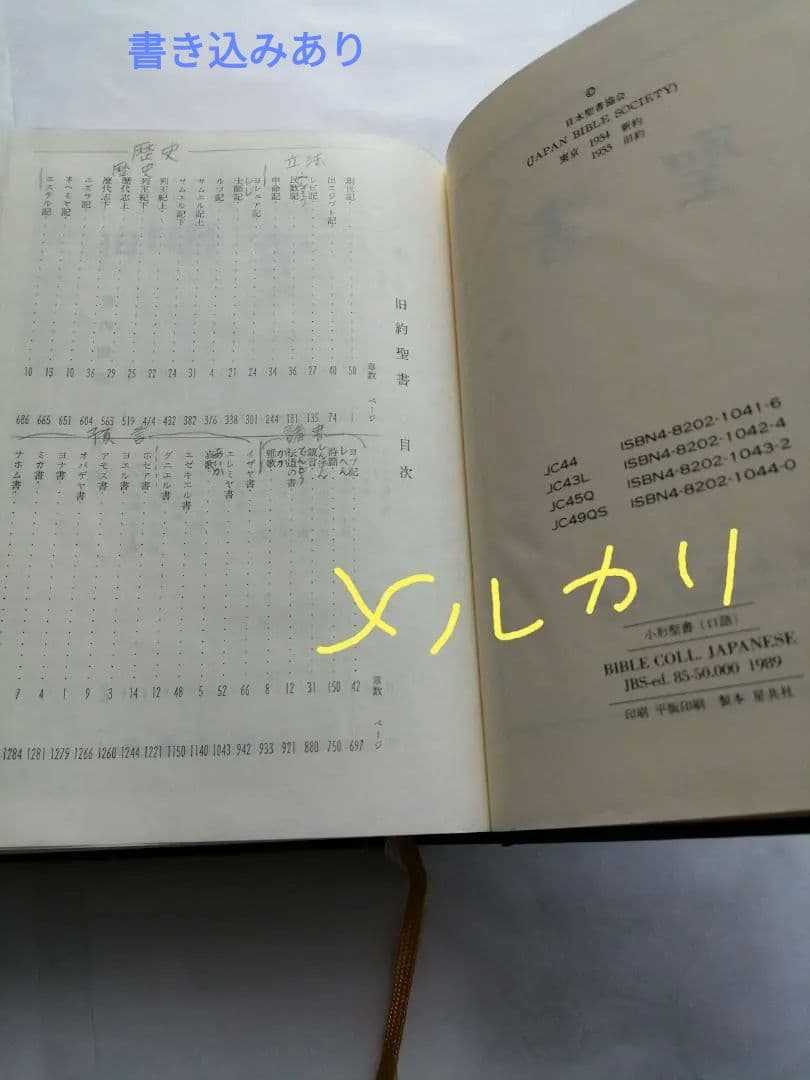 書き込みあり
©
日本聖書協会
(JAPAN BIBLE SOCIETY)
東京 1954 新約
1955 旧約
JC44 ISBN4-8202-1041-6
JC43L ISBN4-8202-1042-4
JC45Q ISBN4-8202-1043-2
JC49QS ISBN4-8202-1044-0
小形聖書（口語）
BIBLE COLL. JAPANESE
JBS-ed. 85-50,000 1989
印刷 平版印刷 製本 星共社
メルカリ
旧約聖書 目次
章数 ページ
立法
創世記 50 1
出エジプト記 40 74
レビ記 27 135
民数記 36 181
申命記 34 244
歴史
歴史
ヨシュア記 24 301
士師記 21 338
ルツ記 4 376
サムエル記上 31 382
サムエル記下 24 432
列王紀上 22 474
列王紀下 25 519
歴代志上 29 563
歴代志下 36 604
エズラ記 10 651
ネヘミヤ記 13 665
エステル記 10 686
章数 ページ
諸書
ヨブ記 42 697
詩篇 しへん 150 750
箴言 しんげん 31 880
伝道の書 でんどう 12 921
雅歌 がか 8 933
預言
イザヤ書 66 942
エレミヤ書 52 1043
哀歌 あいか 5 1140
エゼキエル書 48 1150
ダニエル書 12 1221
ホセア書 14 1244
ヨエル書 3 1260
アモス書 9 1266
オバデヤ書 1 1279
ヨナ書 4 1281
ミカ書 7 1284
ナホム書